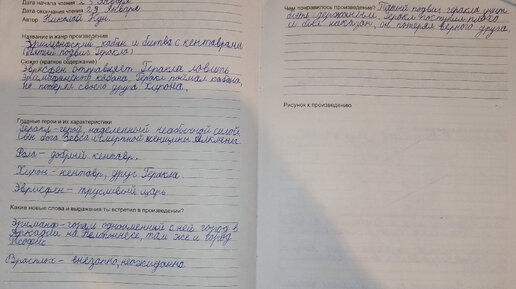 Дата начала чтения 23 Января
Дата окончания чтения 23 Января
Автор Николай Кун
Название и жанр произведения
Эриманфский кабан и битва с кентаврами
(Пятый подвиг Геракла)
Сюжет (краткое содержание)
Эврисфей отправляет Геракла ловить
Эриманфского кабана. Геракл поймал кабана,
но потерял своего друга Хирона.
Главные герои и их характеристики
Геракл - герой, наделенный необычной силой.
Сын бога Зевса и смертной женщины Алкмены.
Фол - добрый кентавр.
Хирон - кентавр, друг Геракла.
Эврисфей - трусливый царь
Какие новые слова и выражения ты встретил в произведении?
Эриманф - гора и одноименный с ней город в
Аркадии на Пелопоннесе, там же и город
Псофис
Врасплох - внезапно, неожиданно.
Чем понравилось произведение? Пятый подвиг Геракла учит
быть сдержанным. Геракл поступил плохо
и был наказан, он потерял верного друга.
Рисунок к произведению